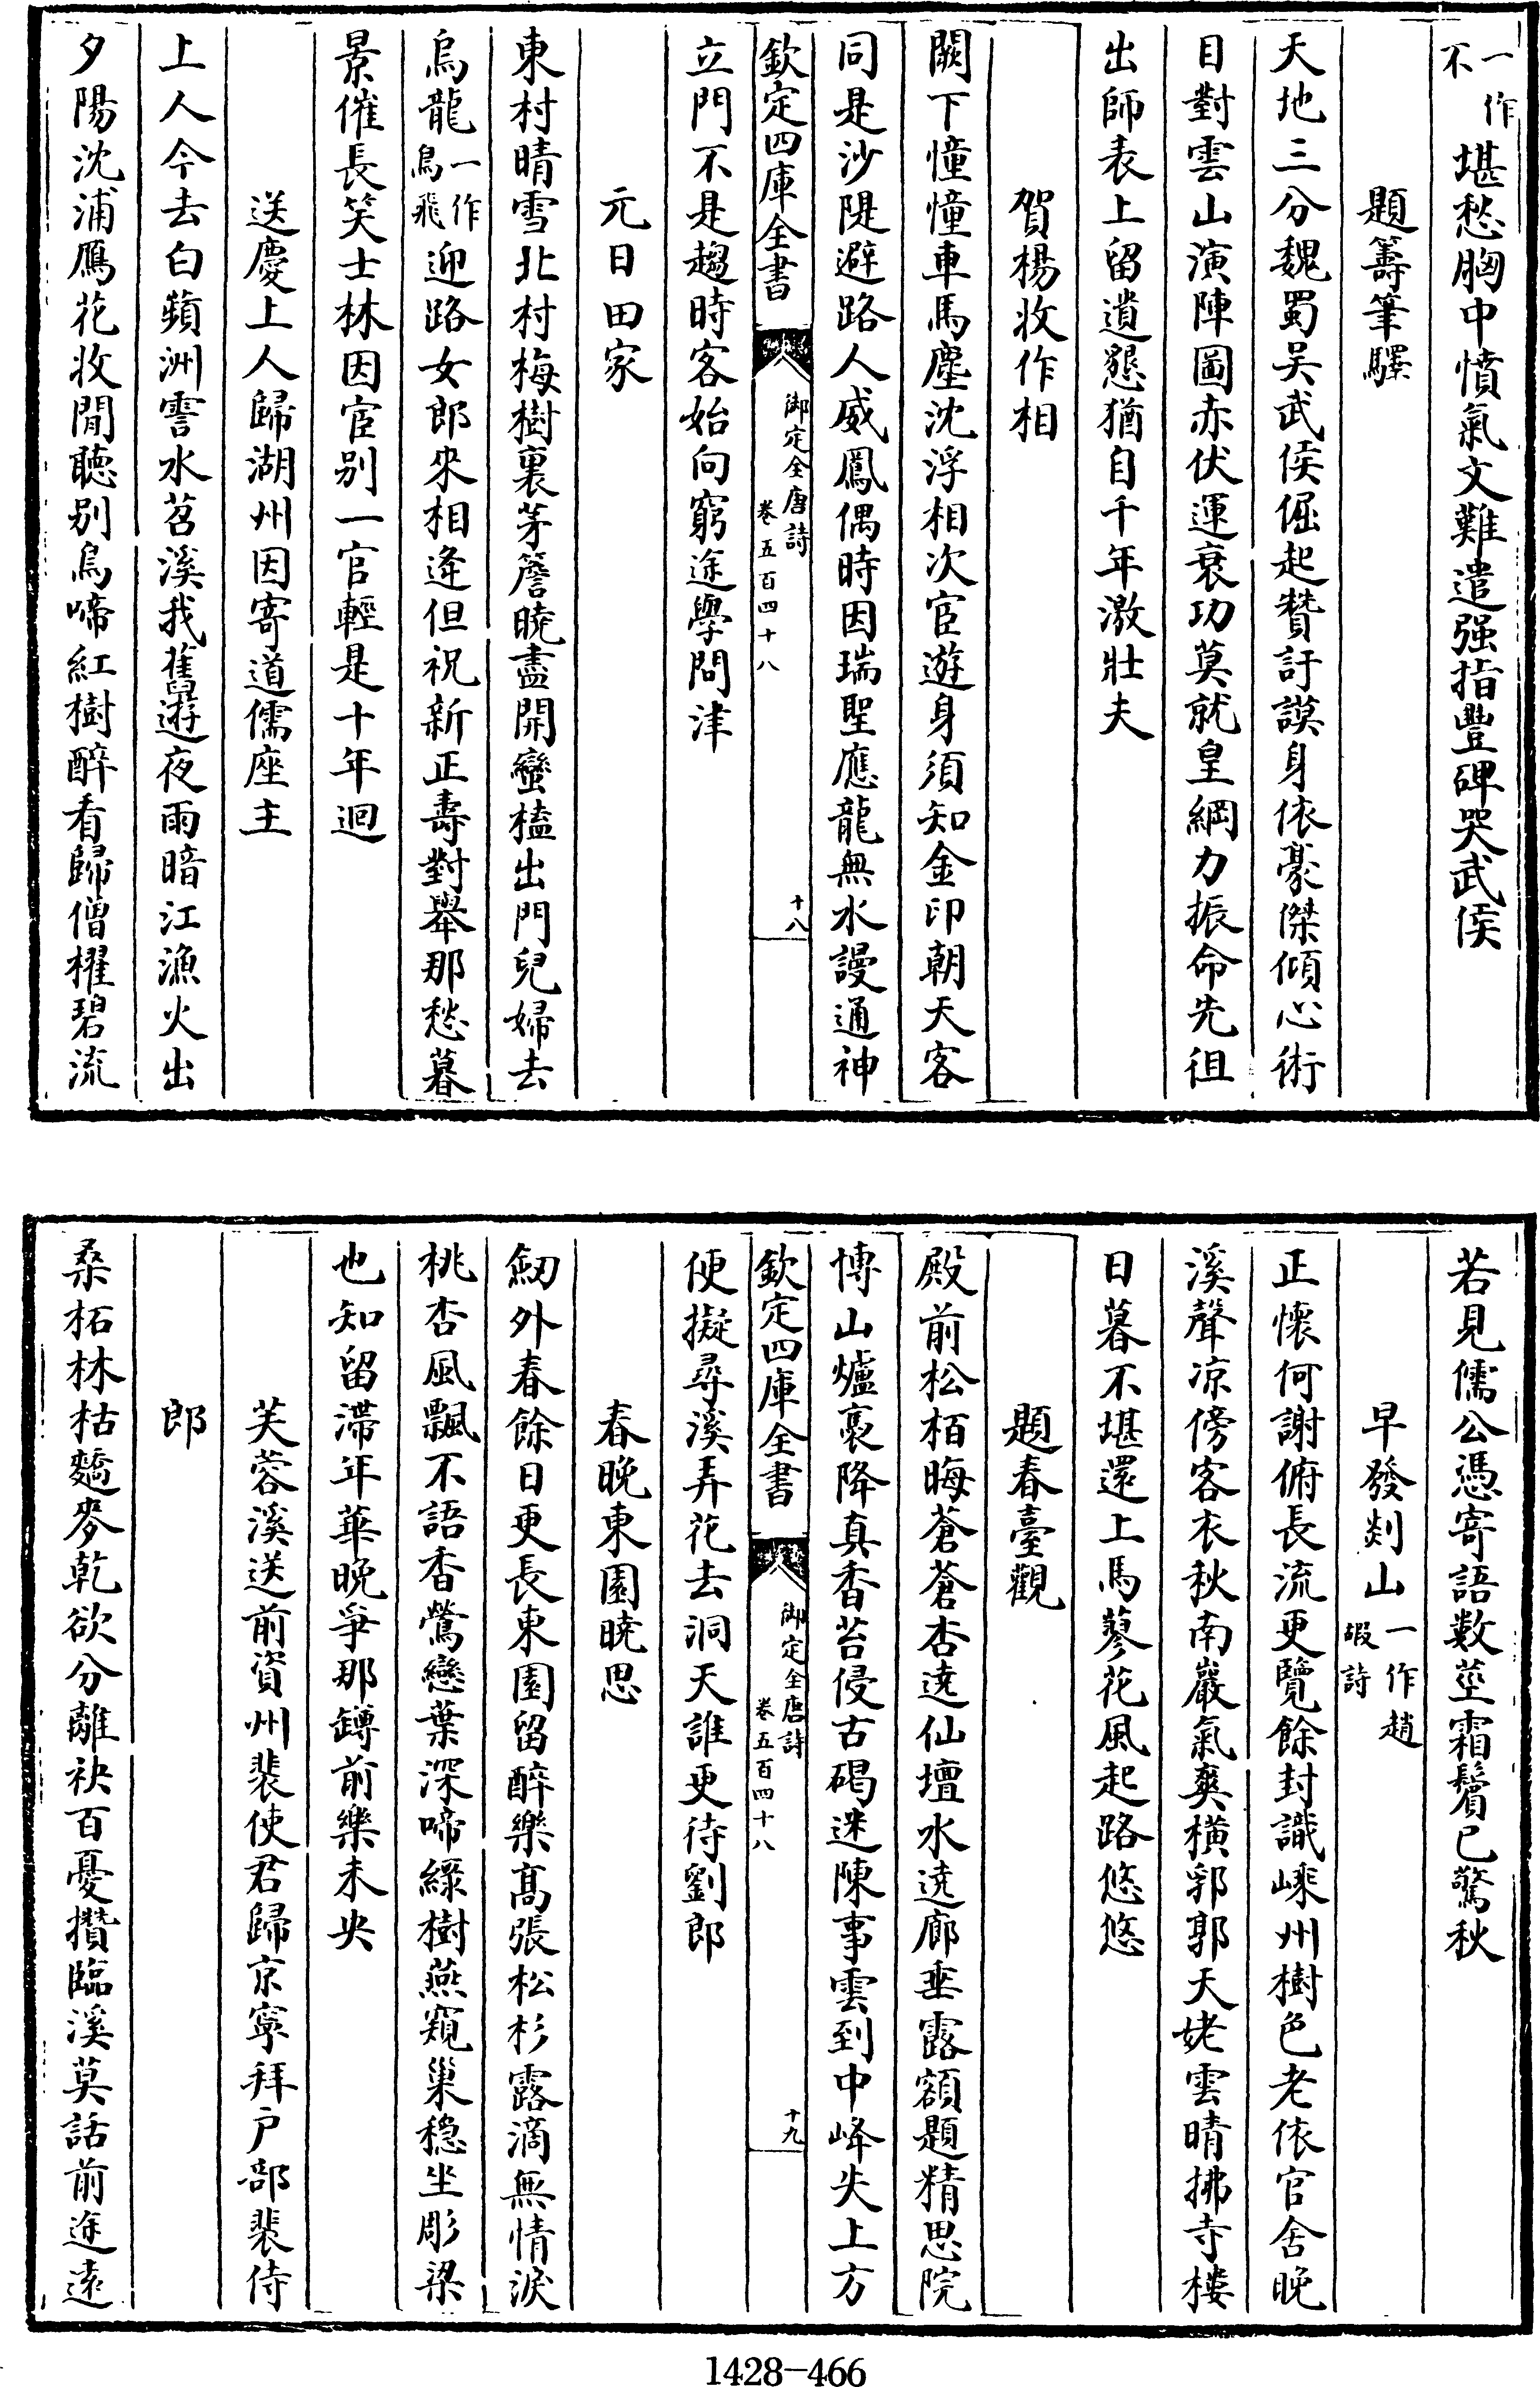 一作不堪愁胸中憤氣文難遣强指豐碑哭武侯
題籌筆驛
天地三分魏蜀吴武侯倔起贊訏謨身依豪傑傾心術
目對雲山演陣圖赤伏運衰功莫就皇綱力振命先徂
出師表上留遺懇猶自千年激壯夫
賀楊收作相
闕下憧憧車馬塵沈浮相次宦遊身須知金印朝天客
同是沙隄避路人威鳳偶時因瑞聖應龍無水謾通神
欽定四庫全書
御定全唐詩
卷五百四十八
十八
立門不是趨時客始向窮途學問津
元日田家
東村晴雪北村梅樹裏茅簷曉盡開蠻榼出門兒婦去
烏龍一作鳥飛迎路女郎來相逢但祝新正壽對舉那愁暮
景催長笑士林因宦别一官輕是十年迴
送慶上人歸湖州因寄道儒座主
上人今去白蘋洲霅水苕溪我舊遊夜雨暗江漁火出
夕陽沈浦鴈花收閒聽别鳥啼紅樹醉看歸僧櫂碧流
若見儒公憑寄語數莖霜鬢已驚秋
早發剡山一作趙嘏詩
正懷何謝俯長流更覽餘封識嵊州樹色老依官舍晚
溪聲凉傍客衣秋南巖氣爽横郛郭天姥雲晴拂寺樓
日暮不堪還上馬蓼花風起路悠悠
題春臺觀
殿前松栢晦蒼蒼杏遶仙壇水遶廊垂露額題精思院
博山爐裛降真香苔侵古碣迷陳事雲到中峰失上方
欽定四庫全書
御定全唐詩
卷五百四十八
十九
便擬尋溪弄花去洞天誰更待劉郎
春晚東園曉思
劒外春餘日更長東園留醉樂高張松杉露滴無情淚
桃杏風飄不語香鶯戀葉深啼綠樹燕窺巢穩坐彫梁
也知留滯年華晚爭那罇前樂未央
芙蓉溪送前資州裴使君歸京寧拜户部裴侍
郎
桑柘林枯蕎麥乾欲分離袂百憂攢臨溪莫話前途遠
1428-466